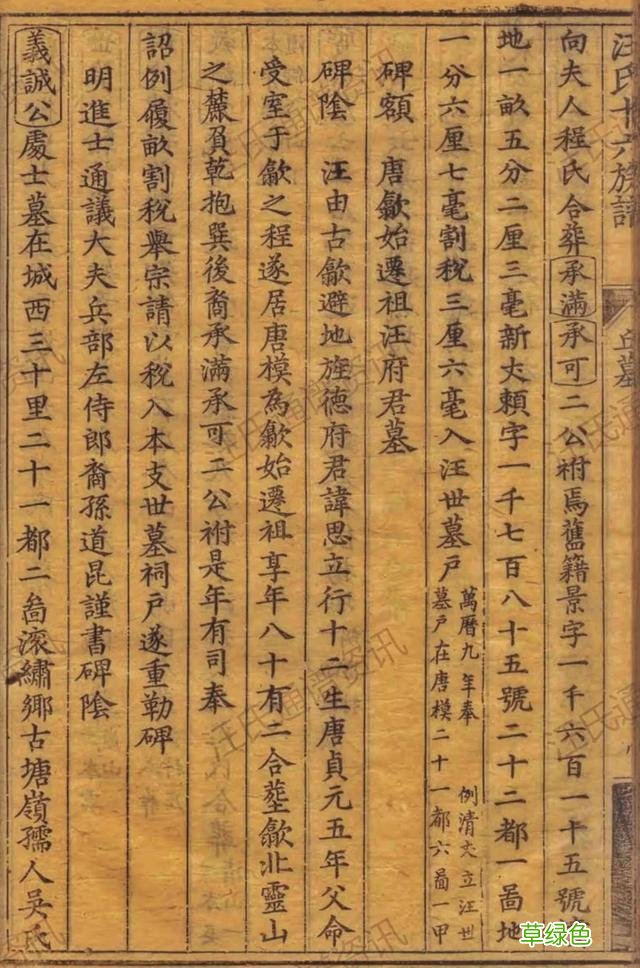 汪氏十六族譜
丘墓
向夫人程氏合葬承滿承可二公祔焉舊籍景字一千六百一十五號
地一畝五分二厘三毫新丈賴字一千七百八十五號二十二都一啚地
一分六厘七毫割稅三厘六毫入汪世墓戶
萬曆九年奉 例清丈立汪世
墓戶在唐模二十一都六啚一甲
碑額 唐歙始遷祖汪府君墓
碑陰 汪由古歙避地旌德府君諱思立行十二生唐貞元五年父命
受室于歙之程遂居唐模為歙始遷祖享年八十有二合塟歙北靈山
之麓負乾抱巽後裔承滿承可二公祔是年有司奉
詔例履畝割稅舉宗請以稅入本支世墓祠戶遂重勒碑
明進士通議大夫兵部左侍郎裔孫道昆謹書碑陰
義誠公處士墓在城西三十里二十一都二啚滾繡鄉古塘嶺孺人吳氏
汪氏通譜资讯
草绿色